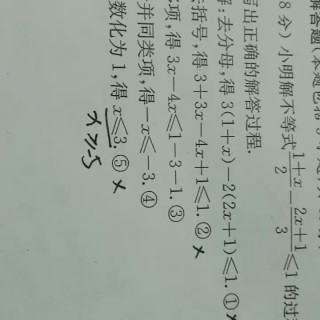 解答题(本题包括
8分) 小明解不等式 \frac{1+x}{2}-\frac{2x+1}{3}≤1 的过
写出正确的解答过程.
:去分母,得 3(1+x)-2(2x+1)≤1.①×
括号,得 3+3x-4x+1≤1.②×
项,得 3x-4x≤1-3-1.③
并同类项,得-x≤-3.④
数化为1,得 x≤3.⑤×
x≥-5